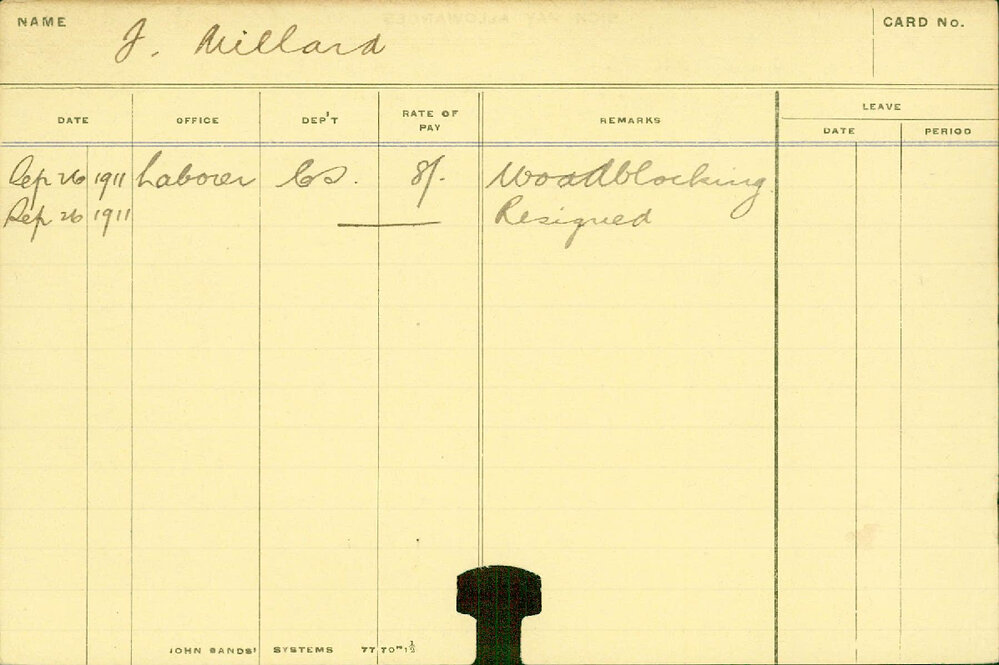 NAME J. Millard CARD No.
DATE OFFICE DEP'T RATE OF PAY REMARKS LEAVE
DATE PERIOD
Sep 26 1911 Laborer Cs. 8/- Woodblocking
Sep 26 1911 Resigned
JOHN SANDS' SYSTEMS